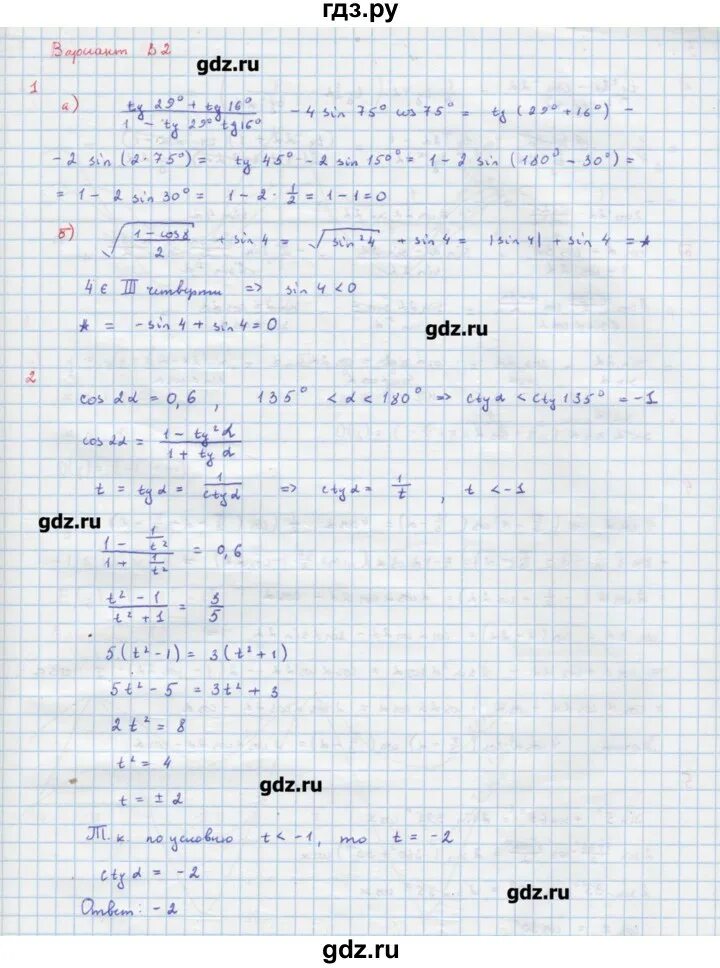 гдз.ру
Вариант В2
gdz.ru
1
а) (tg 29° + tg 16°)/(1 - tg 29° tg 16°) - 4 sin 75° cos 75° = tg (29° + 16°) -
- 2 sin (2·75°) = tg 45° - 2 sin 150° = 1 - 2 sin (180° - 30°) =
= 1 - 2 sin 30° = 1 - 2 · 1/2 = 1 - 1 = 0
б) √((1 - cos 8)/2) + sin 4 = √(sin² 4) + sin 4 = |sin 4| + sin 4 = *
4 ∈ III четверти => sin 4 < 0
* = - sin 4 + sin 4 = 0
gdz.ru
2
cos 2α = 0,6 , 135° < α < 180° => ctg α < ctg 135° = -1
cos 2α = (1 - tg² α)/(1 + tg α)
t = tg α = 1/(ctg α) => ctg α = 1/t , t < -1
gdz.ru
(1 - 1/t²)/(1 + 1/t²) = 0,6
(t² - 1)/(t² + 1) = 3/5
5(t² - 1) = 3(t² + 1)
5t² - 5 = 3t² + 3
2t² = 8
t² = 4
gdz.ru
t = ± 2
Т.к. по условию t < -1, то t = -2
ctg α = -2
gdz.ru
Ответ: -2
gdz.ru